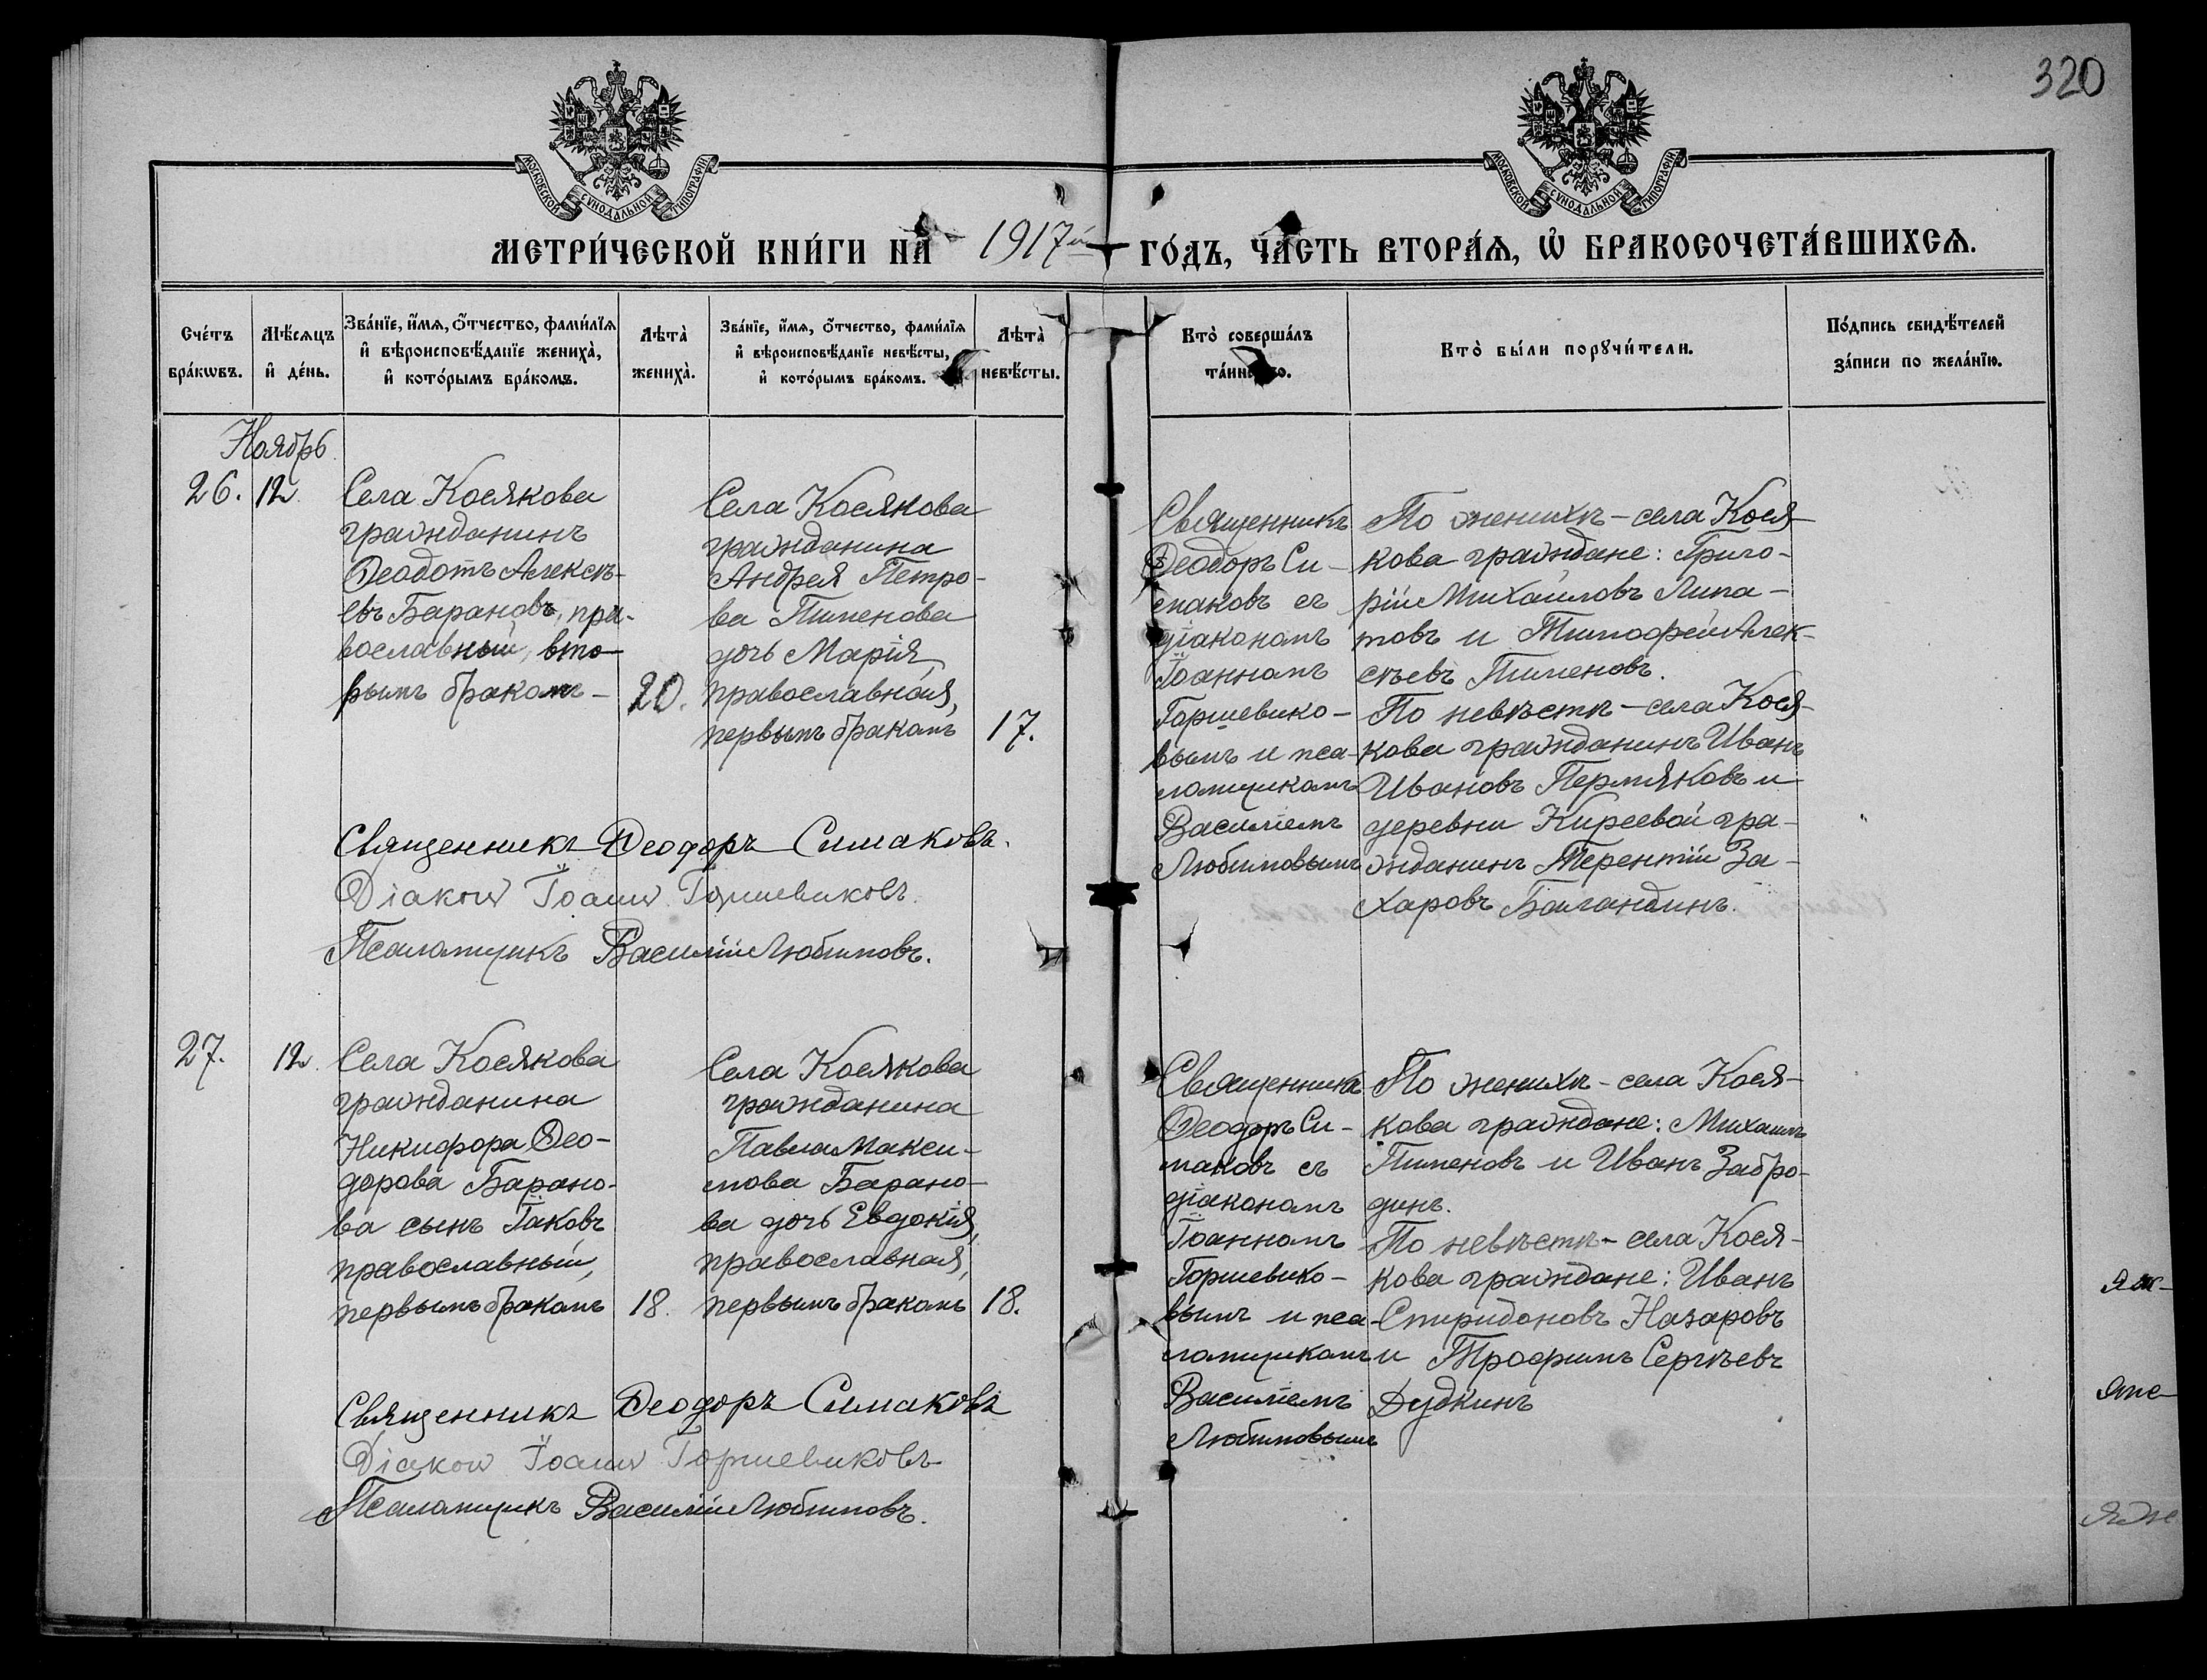 320
МОСКОВСКОЙ СѴНОДАЛЬНОЙ ТИПОГРАФІИ
МОСКОВСКОЙ СѴНОДАЛЬНОЙ ТИПОГРАФІИ
МЕТРИ́ЧЕСКОЙ КНИ́ГИ НА̀ 1917й ГО́ДЪ, ЧА́СТЬ ВТОРА́Ѧ, Ѡ҆ БРАКОСОЧЕТА́ВШИХСѦ.
Сче́тъ
бра́кѡвъ.
Мѣ́сѧцъ
и҆ де́нь.
Зва́нїе, и҆́мѧ, ѻ҆́тчество, фами́лїѧ
и҆ вѣроисповѣ́данїе жениха̀,
и҆ кото́рымъ бра́комъ.
Лѣта̀
жениха̀.
Зва́нїе, и҆́мѧ, ѻ҆́тчество, фами́лїѧ
и҆ вѣроисповѣ́данїе невѣ́сты,
и҆ кото́рымъ бра́комъ.
Лѣта̀
невѣ́сты.
Кто̀ соверша́лъ
та́инство.
Кто̀ бы́ли порꙋчи́тели.
По́дпись свидѣ́телей
за́писи по жела́нїю.
Ноябрь
26.
12
Села Косякова
гражданинъ
Ѳеодотъ Алексѣ-
евъ Барановъ, пра-
вославный, вто-
рымъ бракомъ-
20.
Села Косякова
гражданина
Андрея Петро-
ва Пименова
дочь Марія,
православная,
первымъ бракомъ
17.
Священникъ
Ѳеодоръ Си-
маковъ съ
діакономъ
Іоанномъ
Горшевико-
вымъ и пса-
ломщикомъ
Василіемъ
Любимовымъ
По женихѣ - села Кося-
кова граждане: Григо-
рій Михайловъ Липа-
товъ и Тимофей Алек-
сѣевъ Пименовъ.
По невѣстѣ - села Кося-
кова гражданинъ Иванъ
Ивановъ Пермяковъ и
деревни Киреевой гра-
жданинъ Терентій За-
харовъ Баландинъ.
Священникъ Ѳеодоръ Симаковъ.
Діаконъ Іоаннъ Горшевиковъ.
Псаломщикъ Василій Любимовъ.
27.
12
Села Косякова
гражданина
Никифора Ѳео-
дорова Барано-
ва сынъ Іаковъ,
православный,
первымъ бракомъ
18.
Села Косякова
гражданина
Павла Макси-
мова Барано-
ва дочь Евдокія,
православная,
первымъ бракомъ
18.
Священникъ
Ѳеодоръ Си-
маковъ съ
діакономъ
Іоанномъ
Горшевико-
вымъ и пса-
ломщикомъ
Василіемъ
Любимовымъ
По женихѣ - села Кося-
кова граждане: Михаилъ
Пименовъ и Иванъ Забро-
динъ.
По невѣстѣ - села Кося-
кова граждане: Иванъ
Спиридоновъ Назаровъ
и Трофимъ Сергѣевъ
Дудкинъ
Священникъ Ѳеодоръ Симаковъ
Діаконъ Іоаннъ Горшевиковъ
Псаломщикъ Василій Любимовъ.